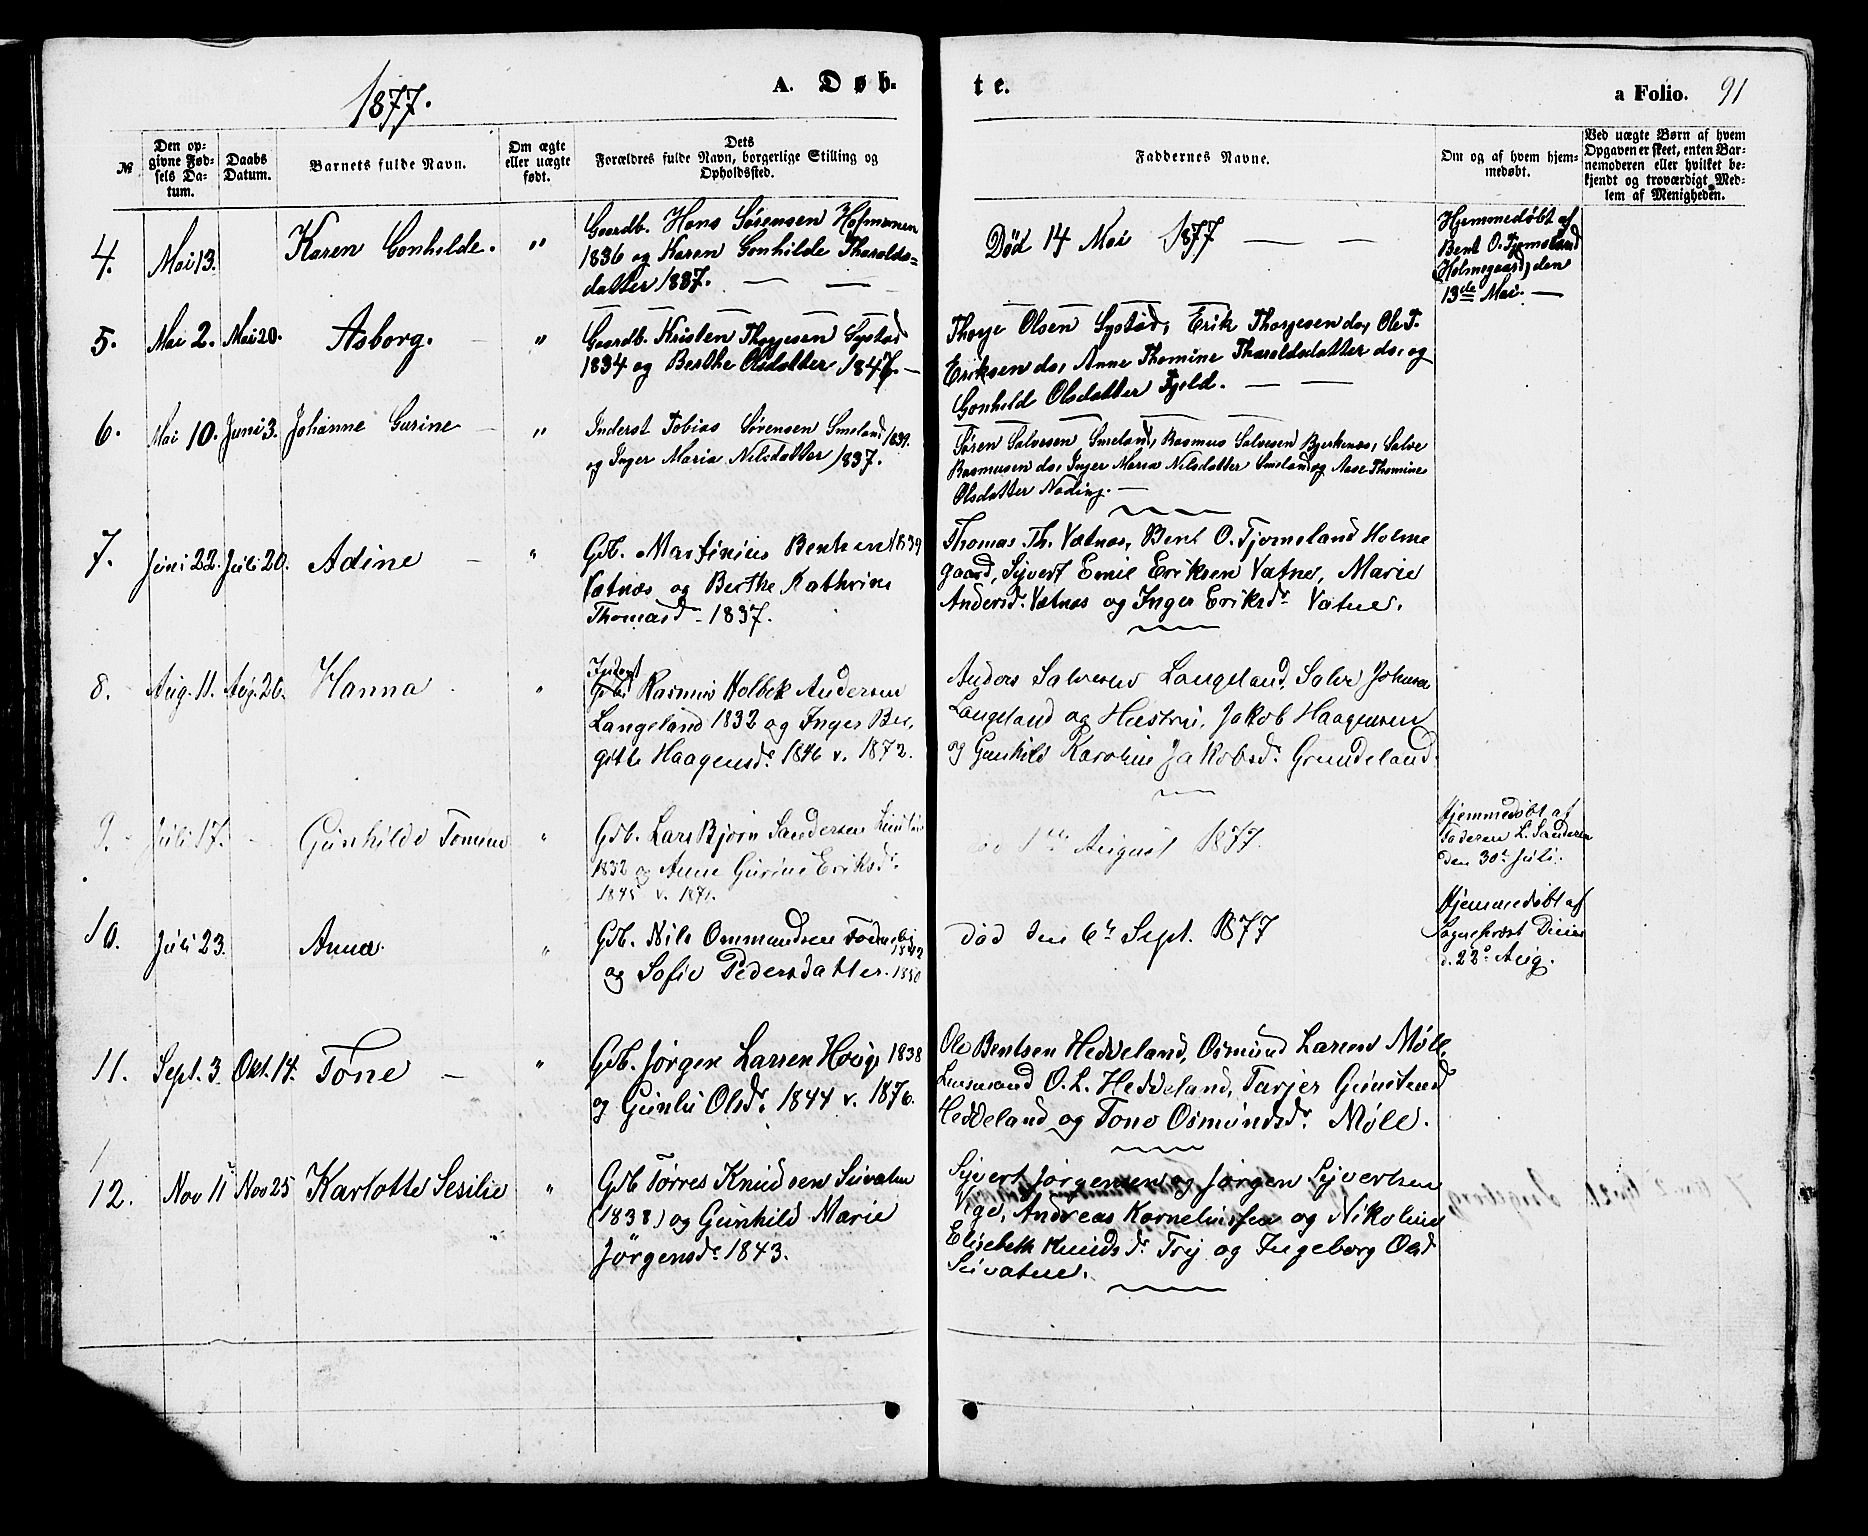 1877.
A. Døb-
te.
a Folio. 91
№
Den op-
givne Fød-
sels Da-
tum.
Daabs
Datum.
Barnets fulde Navn.
Om ægte
eller uægte
født.
Dets
Forældres fulde Navn, borgerlige Stilling og
Opholdssted.
Faddernes Navne.
Om og af hvem hjem-
medøbt.
Ved uægte Børn af hvem
Opgaven er skeet, enten Bar-
nemoderen eller hvilket be-
kjendt og troværdigt Med-
lem af Menigheden.
4. Mai 13. Karen Gonhilde. "
Gaardb. Hans Sørensen Hofmanen
1836 og Karen Gonhilde Tharalds-
datter 1837. — —
Død 14 Mai 1877 — —
Hjemmedøbt af
Bent O. Tjomeland
Holmegaard, den
13de Mai. —
5. Mai 2. Mai 20. Asborg. — "
Gaardb. Kristen Thorjesen Systad
1834 og Berthe Olsdatter 1847. —
Thorje Olsen Systad, Erik Thorjesen do, Ole T.
Eriksen do, Anne Thomine Tharaldsdatter do. og
Gonhild Olsdatter Fjeld. — —
6. Mai 10. Juni 3. Johanne Gurine — "
Inderst Tobias Sørensen Smeland 1839.
og Inger Maria Nilsdatter 1837.
Søren Salvesen Smeland, Rasmus Salvesen Bjerkenæs, Salve
Rasmusen do, Inger Maria Nilsdatter Smeland og Aase Thomine
Olsdatter Noding. —
7. Juni 22. Juli 20. Adine — "
Gdb. Martinius Bentsen 1839
Vatnæs og Berthe Kathrine
Thomasd. 1837.
Thomas Th. Vatnæs, Bent O. Tjomeland Holme
gaard, Sijvert Emil Eriksen Vatne, Marie
Andersd. Vatnæs og Inger Eriksdr. Vatne.
8. Aug. 11. Aug. 26. Hanna "
Inderst
Gdb. Rasmus Holbek Andersen
Langeland 1832 og Inger Ber-
gitte Haagensdr. 1846 v. 1872.
Anders Salvesens Langeland, Salve Johnsen
Langeland og Hustru, Jakob Haagensen
og Gunhild Karoline Jakobsdr. Grundeland.
9. Juli 17. — Gunhilde Tomine "
Gdb. Lars Bjørn Sandersen
1832 og Anne Gurine Eriksdr.
1845 v. 1871.
død 1te August 1877.
Hjemmedøbt af
Faderen L. Sandersen
den 30te Juli.
10. Juli 23. Anna "
Gdb. Nils Ommundsen 1842
og Sofie Pedersdatter. 1850
død den 6te Sept. 1877
Hjemmedøbt af
Sognepræst
d. 22de Aug.
11. Sept. 3. Okt. 14. Tone — "
Gdb. Jørgen Larsen Houge 1838
og Gunlu Olsdr. 1844 v. 1876.
Ole Bentsen Heddeland, Osmund Larsens Møll,
Lensmand O. L. Heddeland, Tarjer Gunstens
Heddeland og Tone Osmundsdr. Møll.
12. Nov 11 Nov 25 Karlotte Sesilie "
Gdb Torres Knudsen Suvatne
(1838) og Gunhild Marie
Jörgensdr. 1843.
Sijvert Jørgensen og Jørgen Sijvertsen
Vge, Andreas Kornelinssen og Nikoline
Elisebeth Knudsdr. Trij og Ingeborg Olsd
Suvatne.